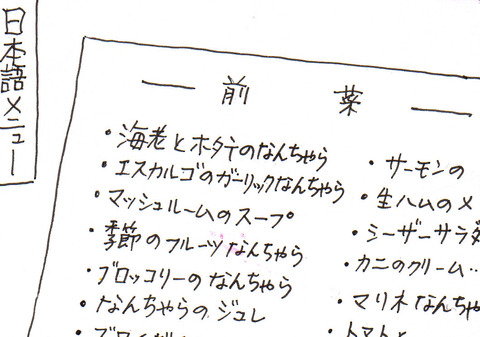 日本語メニュー
前菜
・海老とホタテのなんちゃら
・エスカルゴのガーリックなんちゃら
・マッシュルームのスープ
・季節のフルーツなんちゃら
・ブロッコリーのなんちゃら
・なんちゃらのジュレ
・サーモンの
・生ハムのメ
・シーザーサラダ
・カニのクリーム‥
・マリネなんちゃ
・トマトと